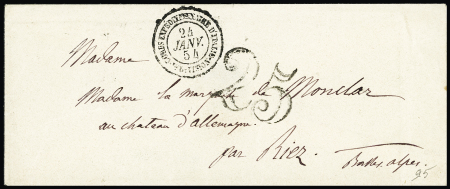 CORPS EXPEDITIONNAIRE D'ITALIE
24
JANV.
54
Madame
25
Madame la marquise de Monclar
au chateau d'allemagne.
par Riez. Basses alpes.
95